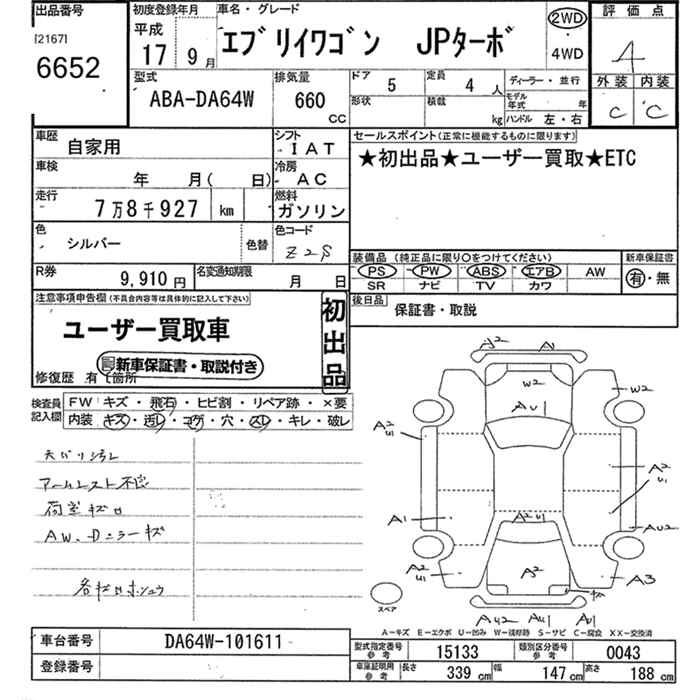 出品番号
[2167]
6652
初度登録年月
平成
17 9月
車名・グレード
エブリイワゴン JPターボ
2WD
・
4WD
評価点
4
外装 内装
C C
型式
ABA-DA64W
排気量
660 CC
ドア 5
定員 4 人
形状
積載 kg
ディーラー・並行
モデル年式 年
ハンドル 左・右
車歴 自家用
シフト IAT
車検 年 月( 日)
冷房 AC
走行 7万8千927 km
燃料 ガソリン
色 シルバー 色替
色コード Z2S
R券 9,910円
名変通知期限 月 日
セールスポイント(正常に機能するものに限ります)
★初出品★ユーザー買取★ETC
装備品(純正品に限り○をつけてください)
PS PW ABS エアB AW
SR ナビ TV カワ
新車保証書
有・無
後日品 保証書・取説
注意事項申告欄(不具合内容等は具体的に記入して下さい)
ユーザー買取車
新車保証書・取説付き
初出品
修復歴 有 箇所
検査員記入欄
FW キズ・飛石・ヒビ割・リペア跡・×要
内装 キズ・汚レ・コゲ・穴・スレ・キレ・破レ
天バリ汚レ
荷室キズ
AW、Dミラーキズ
A2 A1
W2 W2
AU1
A2 U1
A2 U1
A1
AU2
A2 U1
A2 U1
A2
A3
AU2 AU1 AU1
スペア
A-キズ E-エクボ U-凹み W-補修跡 S-サビ C-腐食 XX-交換済
車台番号 DA64W-101611
登録番号
型式指定番号 参考 15133
類別区分番号 参考 0043
車庫証明用 参考 長さ 339 cm 幅 147 cm 高さ 188 cm